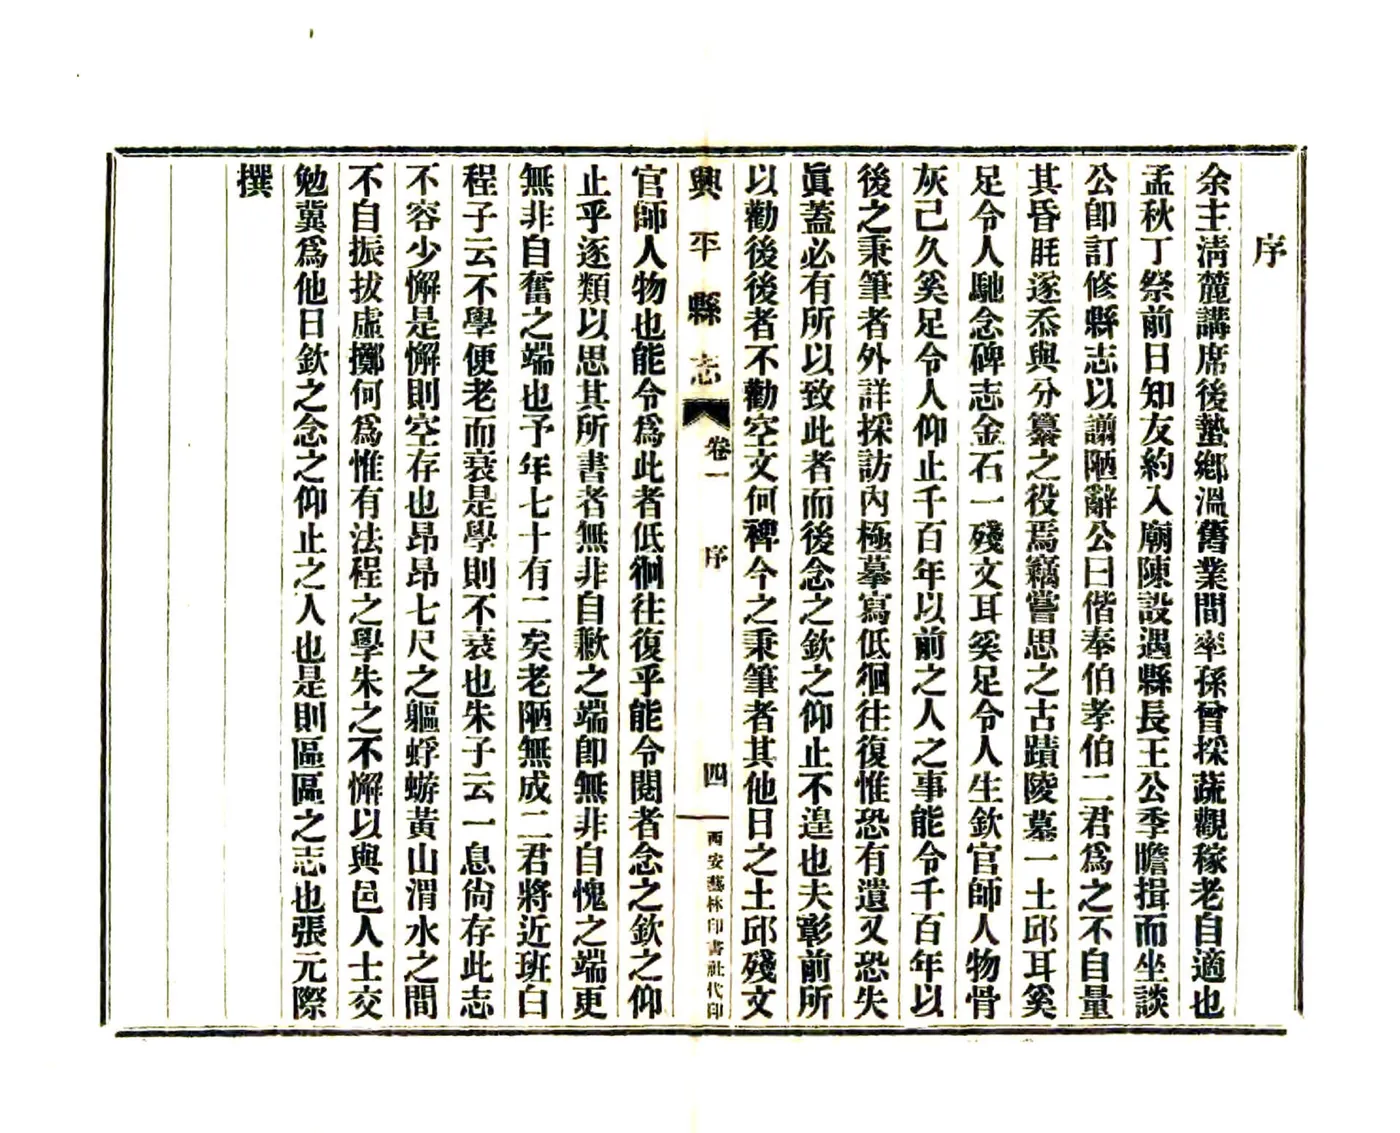 序
余主淸麓講席後蟄鄉溫舊業間率孫曾採蔬觀稼老自適也
孟秋丁祭前日知友約入廟陳設遇縣長王公季瞻揖而坐談
公卽訂修縣志以譾陋辭公曰偕奉伯孝伯二君爲之不自量
其昏眊遂忝與分纂之役焉竊嘗思之古蹟陵墓一土邱耳奚
足令人馳念碑志金石一殘文耳奚足令人生欽官師人物骨
灰已久奚足令人仰止千百年以前之人之事能令千百年以
後之秉筆者外詳採訪內極摹寫低徊往復惟恐有遺又恐失
眞蓋必有所以致此者而後念之欽之仰止不遑也夫彰前所
以勸後後者不勸空文何裨今之秉筆者其他日之土邱殘文
興平縣志 卷一 序 四 西安藝林印書社代印
官師人物也能令爲此者低徊往復乎能令閱者念之欽之仰
止乎逐類以思其所書者無非自歉之端卽無非自愧之端更
無非自奮之端也予年七十有二矣老陋無成二君將近班白
程子云不學便老而衰是學則不衰也朱子云一息尙存此志
不容少懈是懈則空存也昂昂七尺之軀蜉蝣黃山渭水之間
不自振拔虛擲何爲惟有法程之學朱之不懈以與邑人士交
勉冀爲他日欽之念之仰止之人也是則區區之志也張元際
撰